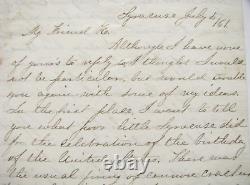 Syracuse July 4/61
My Friend He
Although I have none
of yours to reply to I thought I would
not be particular, but would trouble
you again with some of my ideas.
In the first place, I want to tell
you what poor little Syracuse did
for the celebration of the birthday
of the United States. There was
the usual firing of cannon